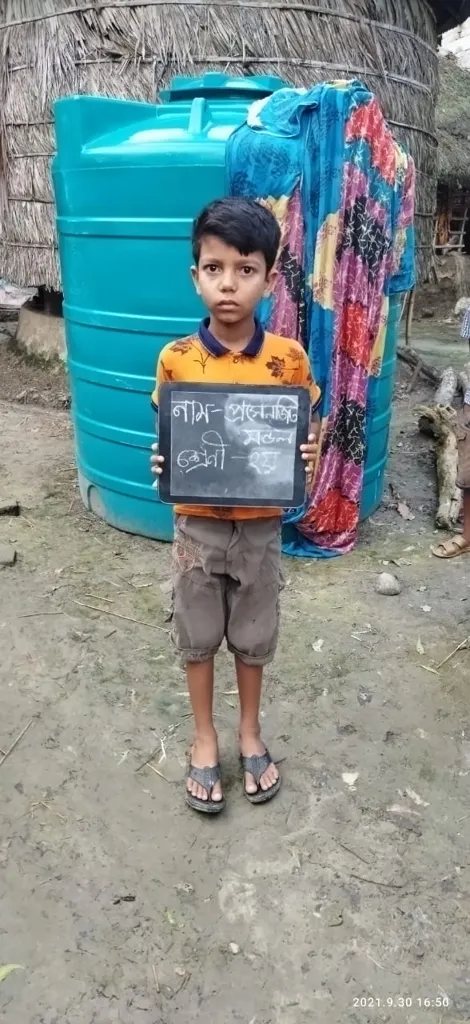 নাম- প্রসেনজিট
মন্ডল
শ্রেণী - ২য়
2021.9.30 16:50